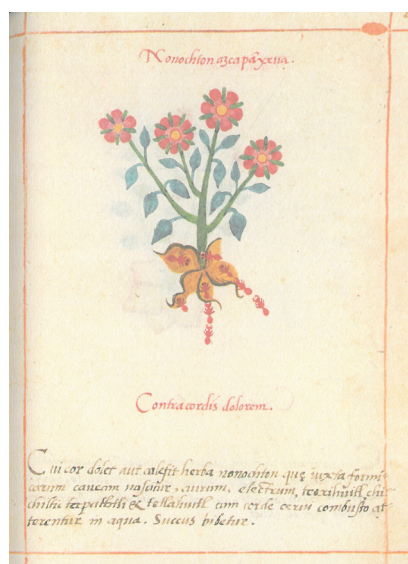 Nonochton azcapãyxua.
Contra cordis dolorem.
Cui cor dolet aut calefit herba nonochton quę iuxta formi
carum caveam nascitur, aurum, electrum, teoxihuitl, chi
chiltic tapachtli & tetlahuitl cum corde cervi combusto at
terentur in aqua. Succus bibetur.